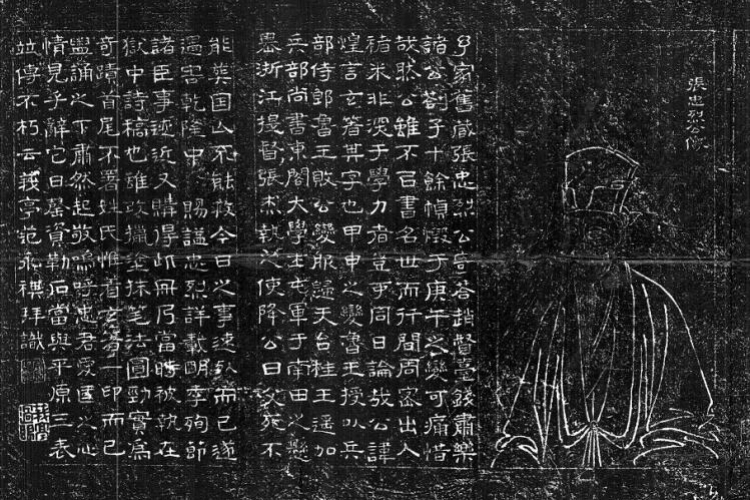 張忠烈公像
予家舊藏張忠烈公答趙督臺錢肅樂
諸公劄子十餘幀燬于庚午之變可痛惜
哉然公雖不以書名世而行間周密出人
褚米非深于學力者豈可同日論哉公諱
煌言玄箸其字也甲申之變魯王授以兵
部侍郎魯王敗公變服謁天台桂王遥加
兵部尚書東閣大學士屯軍于南田之懸
嶴浙江提督張杰執之使降公曰父死不
能葬国亾不能救今日之事速死而已遂
遇害乾隆中賜謚忠烈詳載明季殉節
諸臣事迹近又購得此冊乃當時被執在
獄中詩稿也雖塗抹筆法圓勁實為
奇蹟首尾不署姓氏惟有玄箸一印而已
盥誦之下肅然起敬嗚呼忠君愛國之心
情見乎辭它日罄資勒石當與平原三表
竝傳不朽云莪亭范永祺拜識